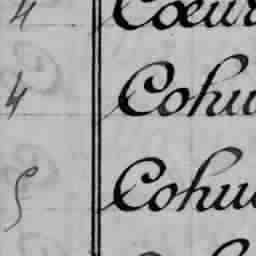 4 Cœur
4 Cohu
5 Cohu